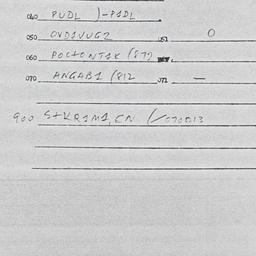 040 PUDL )-P1DL
050 OVD1VUG2 051 0
060 POC+ONT1K (877
070 ANGAB1 (812 071 —
900 S+KR1M1,CN (/070813